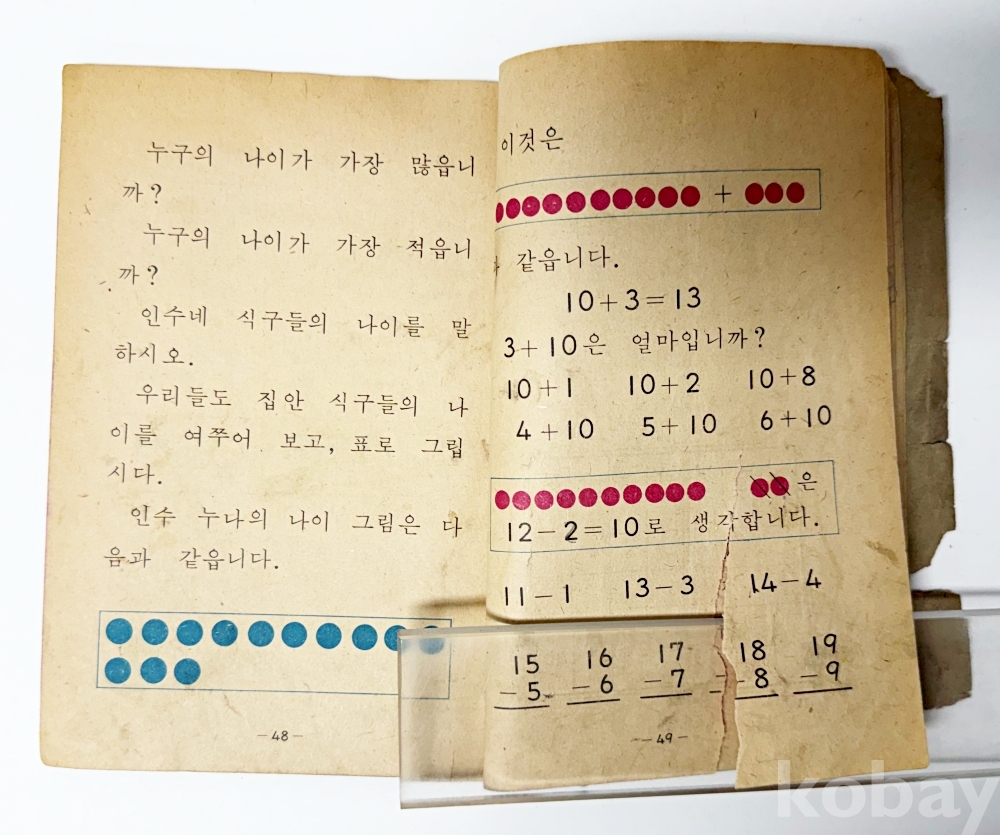 누구의 나이가 가장 많읍니
까?
누구의 나이가 가장 적읍니
까?
인수네 식구들의 나이를 말
하시오.
우리들도 집안 식구들의 나
이를 여쭈어 보고, 표로 그립
시다.
인수 누나의 나이 그림은 다
음과 같읍니다.
-48-
이것은
+
같읍니다.
10+3=13
3+10은 얼마입니까?
10+1 10+2 10+8
4+10 5+10 6+10
은
12-2=10로 생각합니다.
11-1 13-3 14-4
15 16 17 18 19
-5 -6 -7 -8 -9
-49-
kobay